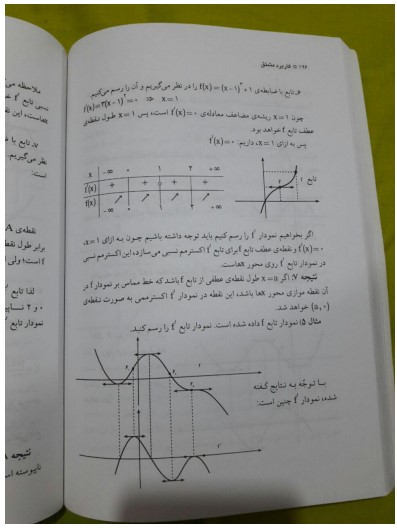 ۱۹۶ □ کاربرد مشتق
۶. تابع با ضابطه‌ی f(x) = (x − 1)³ + 1 را در نظر می‌گیریم و آن را رسم می‌کنیم.
f′(x) = ۳(x − 1)² = ۰ ⇒ x = ۱
چون x = ۱ ریشه‌ی مضاعف معادله‌ی f′(x) = ۰ است، پس x = ۱ طول نقطه‌ی
عطف تابع f خواهد بود.
پس به ازای x = ۱، داریم: f′(x) = ۰
x −∞ ۰ ۱ ۲ +∞
f′(x) + + + +
f(x) −∞ ↗ ↗ ↗ ↗ +∞
تابع f
اگر بخواهیم نمودار f′ را رسم کنیم باید توجه داشته باشیم چون به ازای x = ۱،
f′(x) = ۰ و نقطه‌ی عطف تابع f برای تابع f′ اکسترمم نسبی می‌سازد، این اکسترمم نسبی
در نمودار تابع f′ روی محور xهاست.
نتیجه ۷: اگر x = a طول نقطه‌ی عطفی از تابع f باشد که خط مماس بر نمودار f در
آن نقطه موازی محور xها باشد، این نقطه در نمودار f′ اکسترممی به صورت نقطه‌ی
(a, ۰) خواهد شد.
مثال ۵) نمودار تابع f داده شده است. نمودار تابع f′ را رسم کنید.
با توجّه به نتایج گفته
شده، نمودار f′ چنین است:
f
f′
ملاحظه می
نسبی تابع f
xهاست، این
۷. تابع با ض
نظر می‌گیریم
است:
نقطه‌ی A
برابر طول نقطه
f است؛ ولی
لذا تابع
۰ و ۲ ناپیو
نمودار تابع f′
نتیجه ۸
ناپیوسته اس